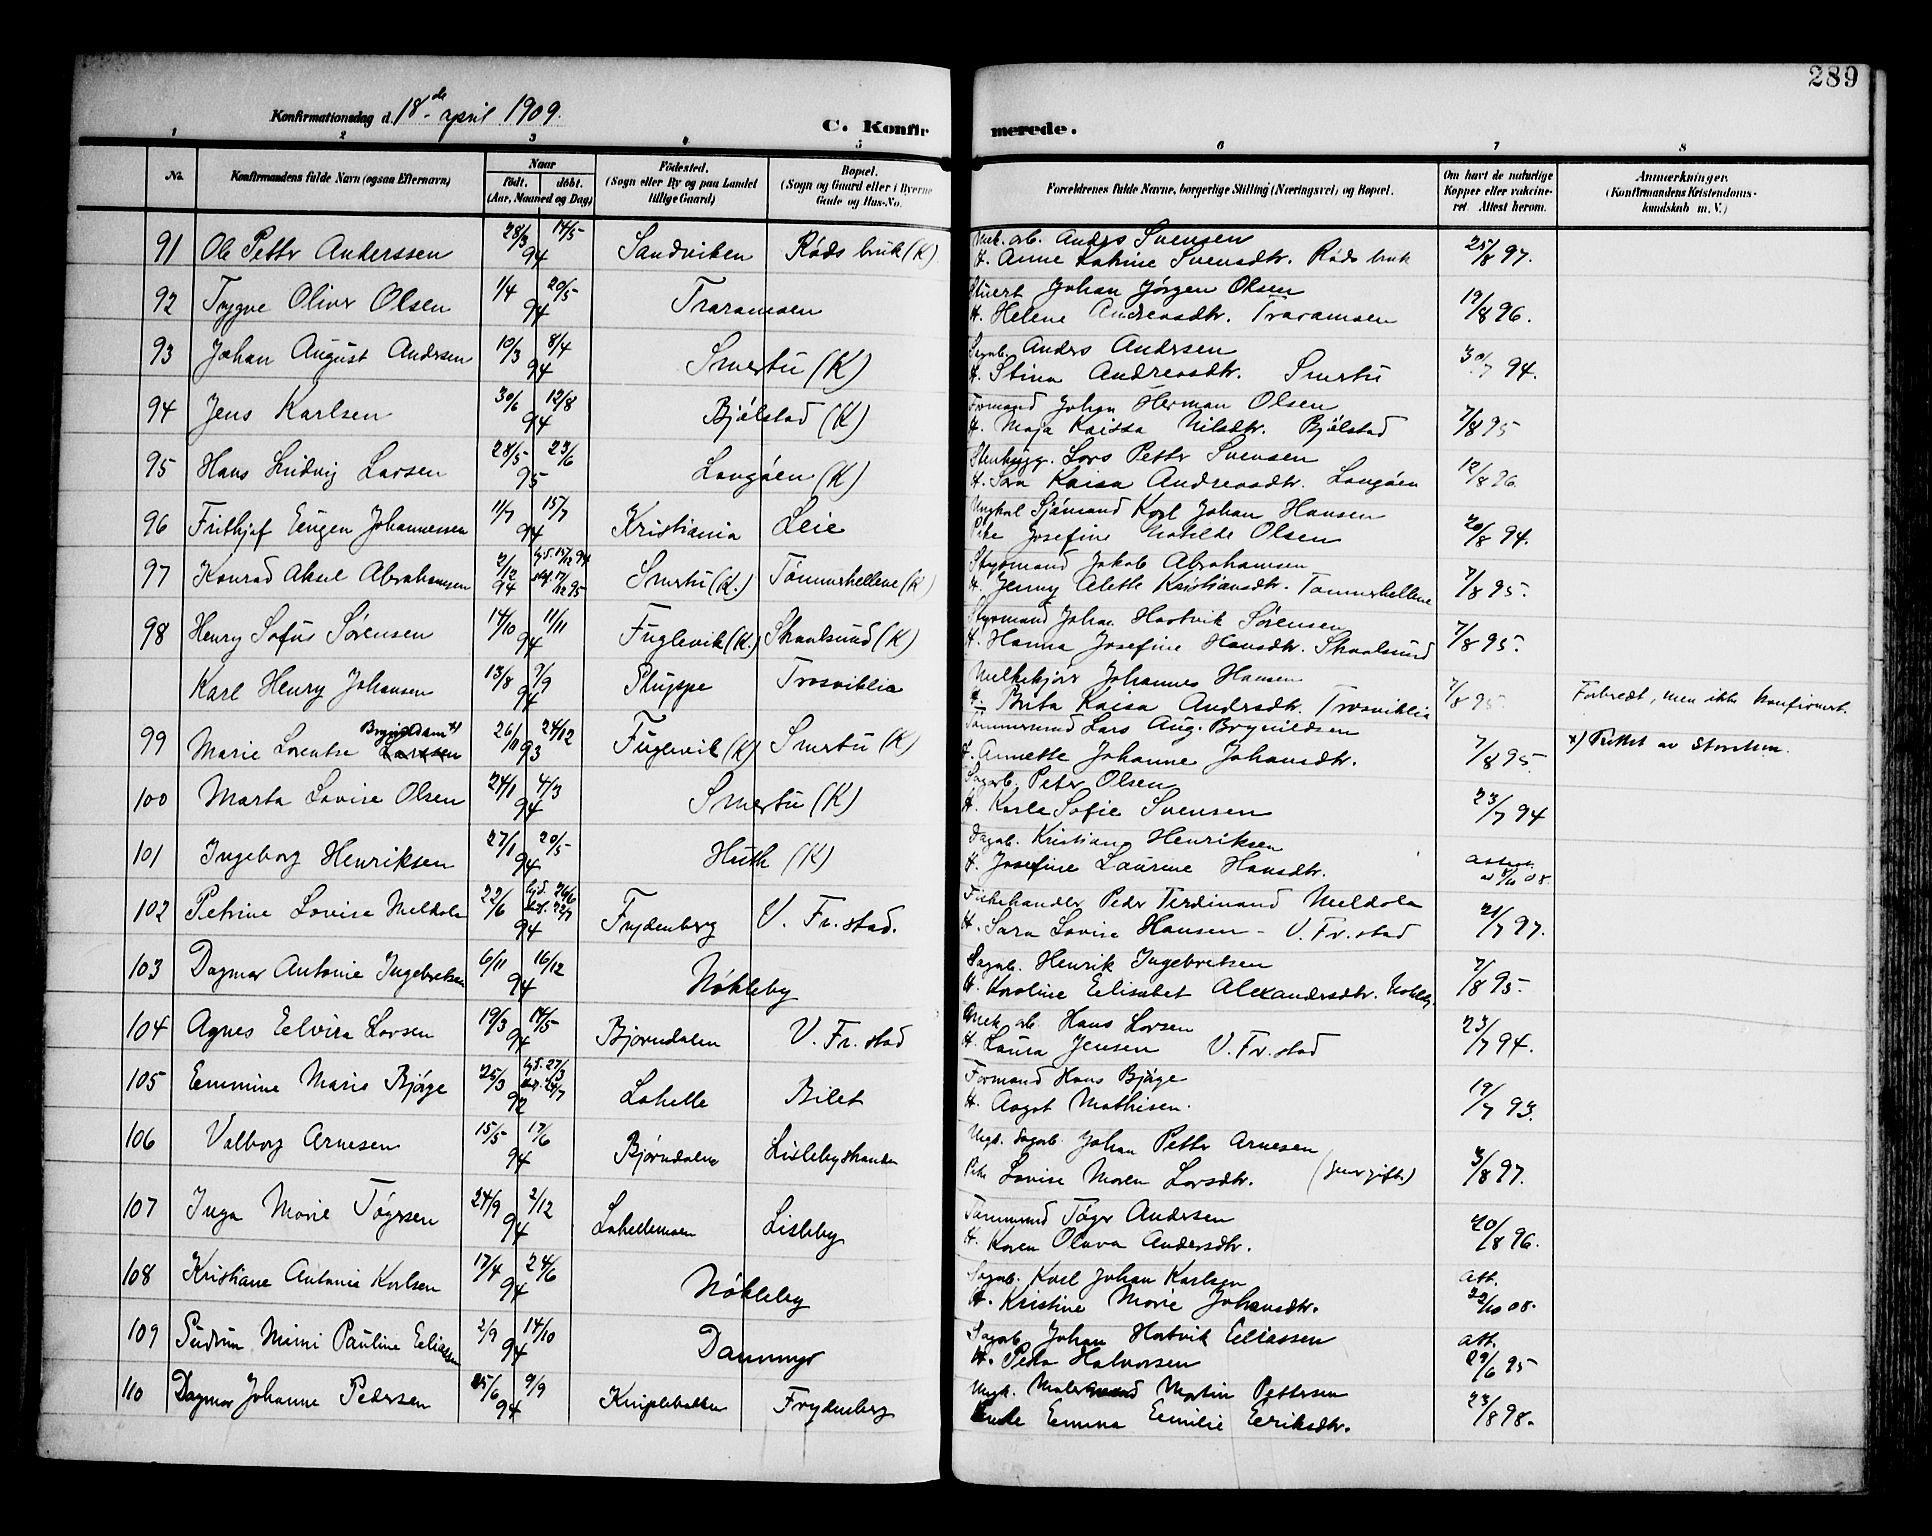 289
Konfirmationsdag d. 18de april 1909.
C. Konfirmerede.
1 2 3 4 5 6 7 8
No.
Konfirmandens fulde Navn (ogsaa Efternavn)
Naar
født. døbt.
(Aar, Maaned og Dag)
Fødested.
(Sogn eller By og paa Landet
tillige Gaard)
Bopæl.
(Sogn og Gaard eller i Byerne
Gade og Hus-No.
Forældrenes fulde Navne, borgerlige Stilling (Næringsvei) og Bopæl.
Om havt de naturlige
Kopper eller vakcineret
Attest herom.
Anmærkninger.
(Konfirmandens Kristendomskundskab
m. V.)
91 Ole Petter Anderssen 28/3 14/5 94 Sandviken Røds bruk (K) Mek. arb. Anders Svensen 25/8 97.
H. Anne Katrine Svensdtr. Røds bruk
92 Trygve Oliver Olsen 1/4 20/5 94 Traramoen Stuert Johan Jørgen Olsen 19/8 96.
H. Helene Andreasdtr. Traramoen
93 Johan August Andersen 10/3 8/4 94 Smertu (K) Sagarb. Anders Andersen 30/7 94.
H. Stina Andreasdtr. Smertu
94 Jens Karlsen 30/6 12/8 94 Bjølstad (K) Formand Johan Herman Olsen 7/8 95
H. Maja Kaissa Nilsdtr. Bjølstad
95 Hans Ludvig Larsen 28/5 23/6 95 Langøen (K) Stenhugg. Lars Petter Svensen 12/8 96
H. Sara Kaisa Andreasdtr. Langøen
96 Frithjof Eugen Johannessen 11/7 15/7 94 Kristiania Leie Ungkal Sjømand Karl Johan Hansen 20/8 94.
Pike Josefine Matilde Olsen
97 Konrad Aksel Abrahamsen 2/12 94 hjd. 15/12 94 stf. 17/12 95 Smertu (K.) Tømmerhellene (K) Styrmand Jakob Abrahamsen 7/8 95.
H. Jenny Alette Kristiansdtr. Tømmerhellene
98 Henry Sofus Sørensen 14/10 11/11 94 Fuglevik (K.) Skaalsund (K) Styrmand Johan Hartvik Sørensen 7/8 95.
H. Hanna Josefine Hansdtr. Skaalsund
Karl Henry Johansen 13/8 9/9 94 Stuppe Trosviklia Melkekjører Johannes Hansen 7/8 95. Forberedt, men ikke konfirmert.
H. Brita Kaisa Andersdtr. Trosviklia
99 Marie Lorentse Larssen 26/11 24/12 93 Fuglevik (K) Smertu (K) Tømmermand Lars Aug. Brynildsen 7/8 95. x) Rettet av Storeheim
H. Annette Johanne Johansdtr.
100 Marta Lovise Olsen 24/1 4/3 94 Smertu (K) Sagarb. Peter Olsen 23/7 94
H. Karla Sofie Svensen
101 Ingeborg Henriksen 27/1 20/5 94 Huth (K) Dagarb. Kristian Henriksen
H. Josefine Laurine Hansdtr.
102 Petrine Lovise Meldola 22/6 hjd. 26/6 stf. 22/7 94 Frydenberg V. Fr.stad. Fiskehandler Peder Ferdinand Meldola 21/7 97.
H. Sara Lovise Hansen - V. Fr. stad
103 Dagmar Antonie Ingebretsen 6/11 16/12 94 Nøkleby Sagarb. Henrik Ingebretsen 7/8 95.
H. Karoline Eelisabet Alexandersdtr. Nøkleby
104 Agnes Eelvira Larsen 19/3 14/5 94 Bjørndalen V. Fr. stad Mek. arb. Hans Larsen 23/7 94.
H. Laura Jensen V. Fr. stad
105 Eemmine Marie Bjørge 25/3 hjd. 27/3 stf. 24/7 92 Lahelle Bilet Formand Hans Bjørge 19/7 93.
H. Aagot Mathisen.
106 Valborg Arnesen 15/5 17/6 94 Bjørndalen Lislebystranden Ungk. Dagarb. Johan Petter Arnesen 3/8 97.
Pike Lovise Maren Larsdtr. (senere gifte)
107 Inga Marie Tøgersen 24/9 2/12 94 Lahellemoen Lisleby Tømmermand Tøger Andersen 20/8 96.
H. Karen Olava Andersdtr.
108 Kristiane Antonie Karlsen 17/4 24/6 94 Nøkleby Sagarb. Karl Johan Karlsen att. 22/10 08.
H. Kristine Marie Johansdtr.
109 Gudrun Mimi Pauline Eeliassen 2/9 14/10 94 Dammyr Sagarb. Johan Hartvik Eeliassen att. 29/6 95
H. Petra Halvorsen
110 Dagmar Johanne Pedersen 25/6 9/9 94 Kniplebakken Frydenberg Ungk. Maler Martin Pettersen 23/8 98.
Enke Eemma Eemilie Eeriksdtr.